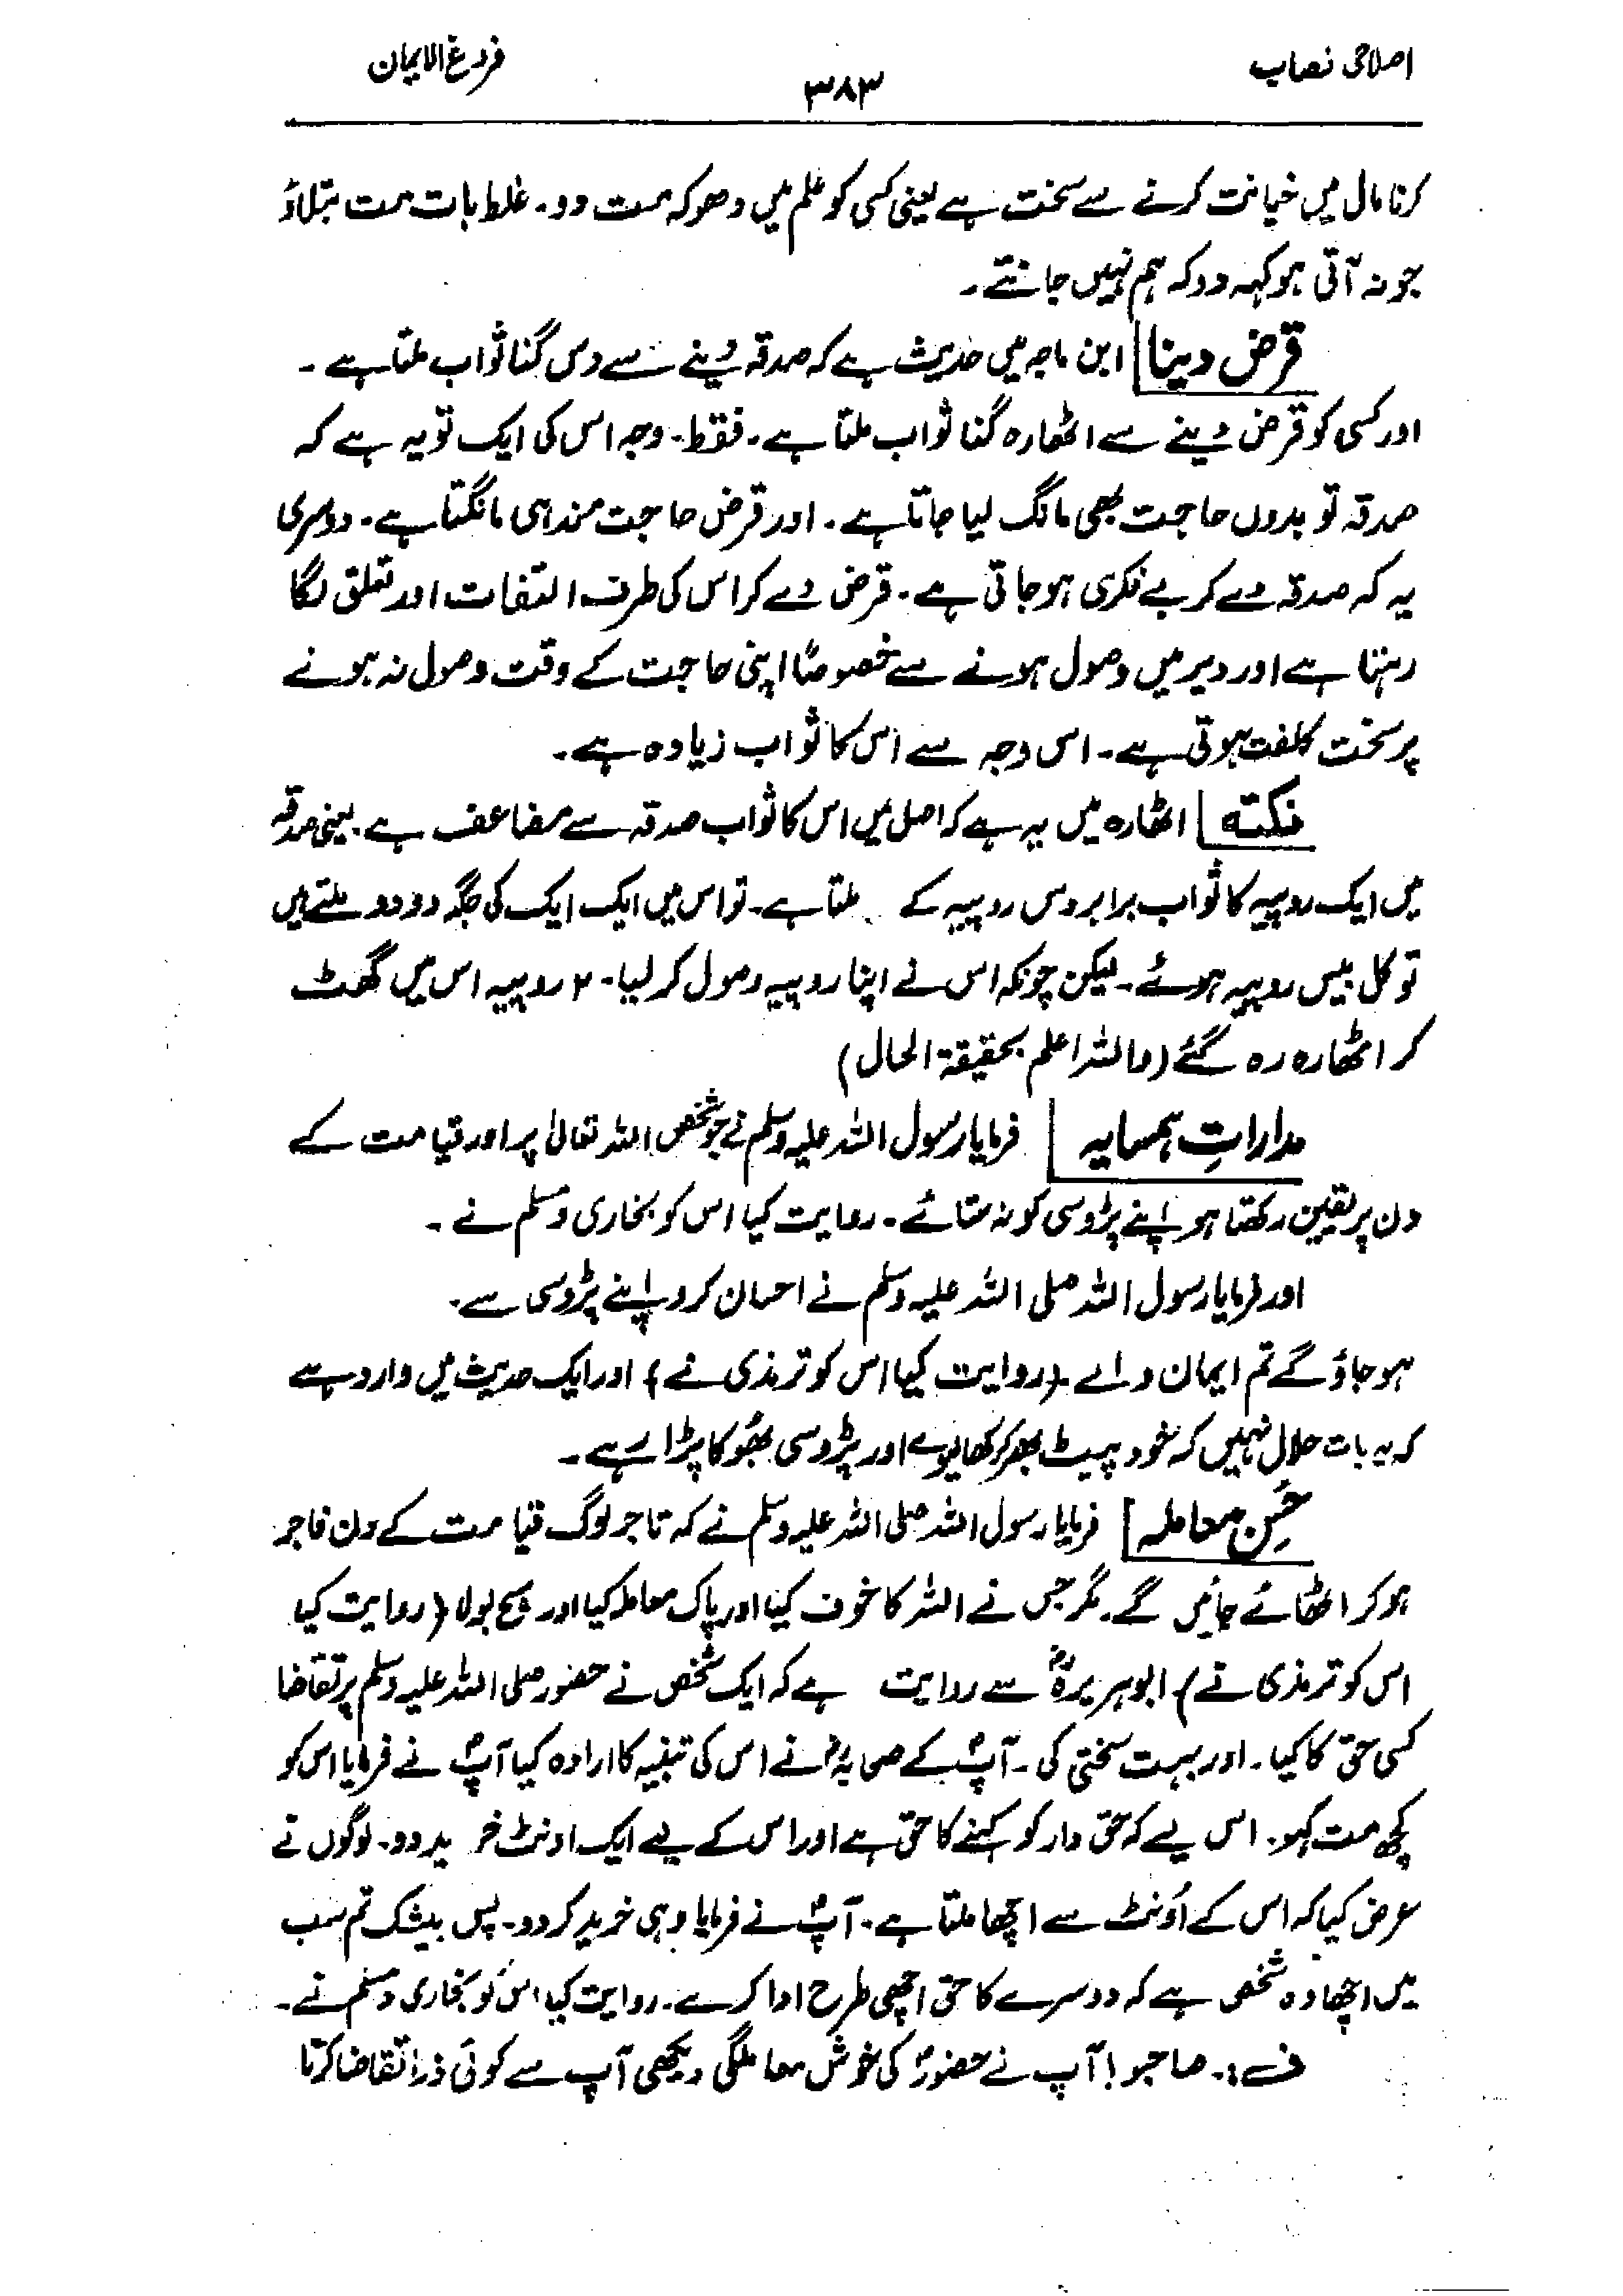 اصلاحی نصاب
۳۸۳
فروع الایمان
کرنا مال میں خیانت کرنے سے سخت ہے یعنی کسی کو علم میں دھوکہ مت دو۔ غلط بات مت بتلاؤ
جو نہ آتی ہو کہہ دو کہ ہم نہیں جانتے۔
قرض دینا ابن ماجہ میں حدیث ہے کہ صدقہ دینے سے دس گنا ثواب ملتا ہے۔
اور کسی کو قرض دینے سے اٹھارہ گنا ثواب ملتا ہے۔ فقط۔ وجہ اس کی ایک تو یہ ہے کہ
صدقہ تو بدوں حاجت بھی مانگ لیا جاتا ہے۔ اور قرض حاجت مند ہی مانگتا ہے۔ دوسری
یہ کہ صدقہ دے کر بے فکری ہو جاتی ہے۔ قرض دے کر اس کی طرف التفات اور تعلق لگا
رہتا ہے اور دیر میں وصول ہونے سے خصوصاً اپنی حاجت کے وقت وصول نہ ہونے
پر سخت کلفت ہوتی ہے۔ اس وجہ سے اس کا ثواب زیادہ ہے۔
نکتہ اٹھارہ میں یہ ہے کہ اصل میں اس کا ثواب صدقہ سے مضاعف ہے۔ یعنی صدقہ
میں ایک روپیہ کا ثواب برابر دس روپیہ کے ملتا ہے۔ تو اس میں ایک ایک کی جگہ دو دو ملتے ہیں
تو کل بیس روپیہ ہوئے۔ لیکن چونکہ اس نے اپنا روپیہ وصول کر لیا۔ ۲ روپیہ اس میں گھٹ
کر اٹھارہ رہ گئے (واللہ اعلم بحقیقۃ الحال)
مداراتِ ہمسایہ فرمایا رسول اللہ علیہ وسلم نے جو شخص اللہ تعالیٰ پر اور قیامت کے
دن پر یقین رکھتا ہو اپنے پڑوسی کو نہ ستائے۔ روایت کیا اس کو بخاری و مسلم نے۔
اور فرمایا رسول اللہ صلی اللہ علیہ وسلم نے احسان کرو اپنے پڑوسی سے۔
ہو جاؤ گے تم ایمان والے۔ (روایت کیا اس کو ترمذی نے) اور ایک حدیث میں وارد ہے
کہ یہ بات حلال نہیں کہ خود پیٹ بھر کر کھالیوے اور پڑوسی بھوکا پڑا رہے۔
حُسنِ معاملہ فرمایا رسول اللہ صلی اللہ علیہ وسلم نے کہ تاجر لوگ قیامت کے دن فاجر
ہو کر اٹھائے جائیں گے۔ مگر جس نے اللہ کا خوف کیا اور پاک معاملہ کیا اور سچ بولا (روایت کیا
اس کو ترمذی نے) ابوہریرہؓ سے روایت ہے کہ ایک شخص نے حضور صلی اللہ علیہ وسلم پر تقاضا
کسی حق کا کیا۔ اور بہت سختی کی۔ آپؐ کے صحابہؓ نے اس کی تنبیہ کا ارادہ کیا آپؐ نے فرمایا اس کو
کچھ مت کہو۔ اس لیے کہ حق دار کو کہنے کا حق ہے اور اس کے لیے ایک اونٹ خرید دو۔ لوگوں نے
عرض کیا کہ اس کے اُونٹ سے اچھا ملتا ہے۔ آپؐ نے فرمایا وہی خرید کر دو۔ پس بیشک تم سب
میں اچھا وہ شخص ہے کہ دوسرے کا حق اچھی طرح ادا کرے۔ روایت کیا اس کو بخاری و مسلم نے۔
ف:۔ صاحبو! آپ نے حضورؐ کی خوش معاملگی دیکھی آپ سے کوئی ذرا تقاضا کرتا